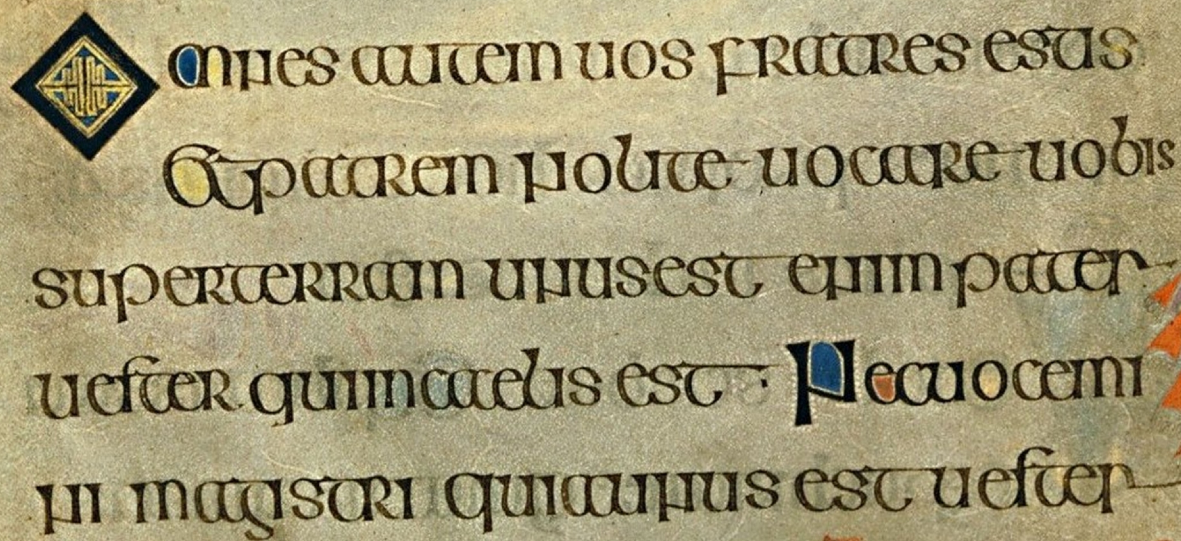 Omnes autem uos fratres estis
Et patrem nolite uocare uobis
superterram unusest enim pater
uester quiincaelis est · Necuocemi
ni magistri quiaunus est uester